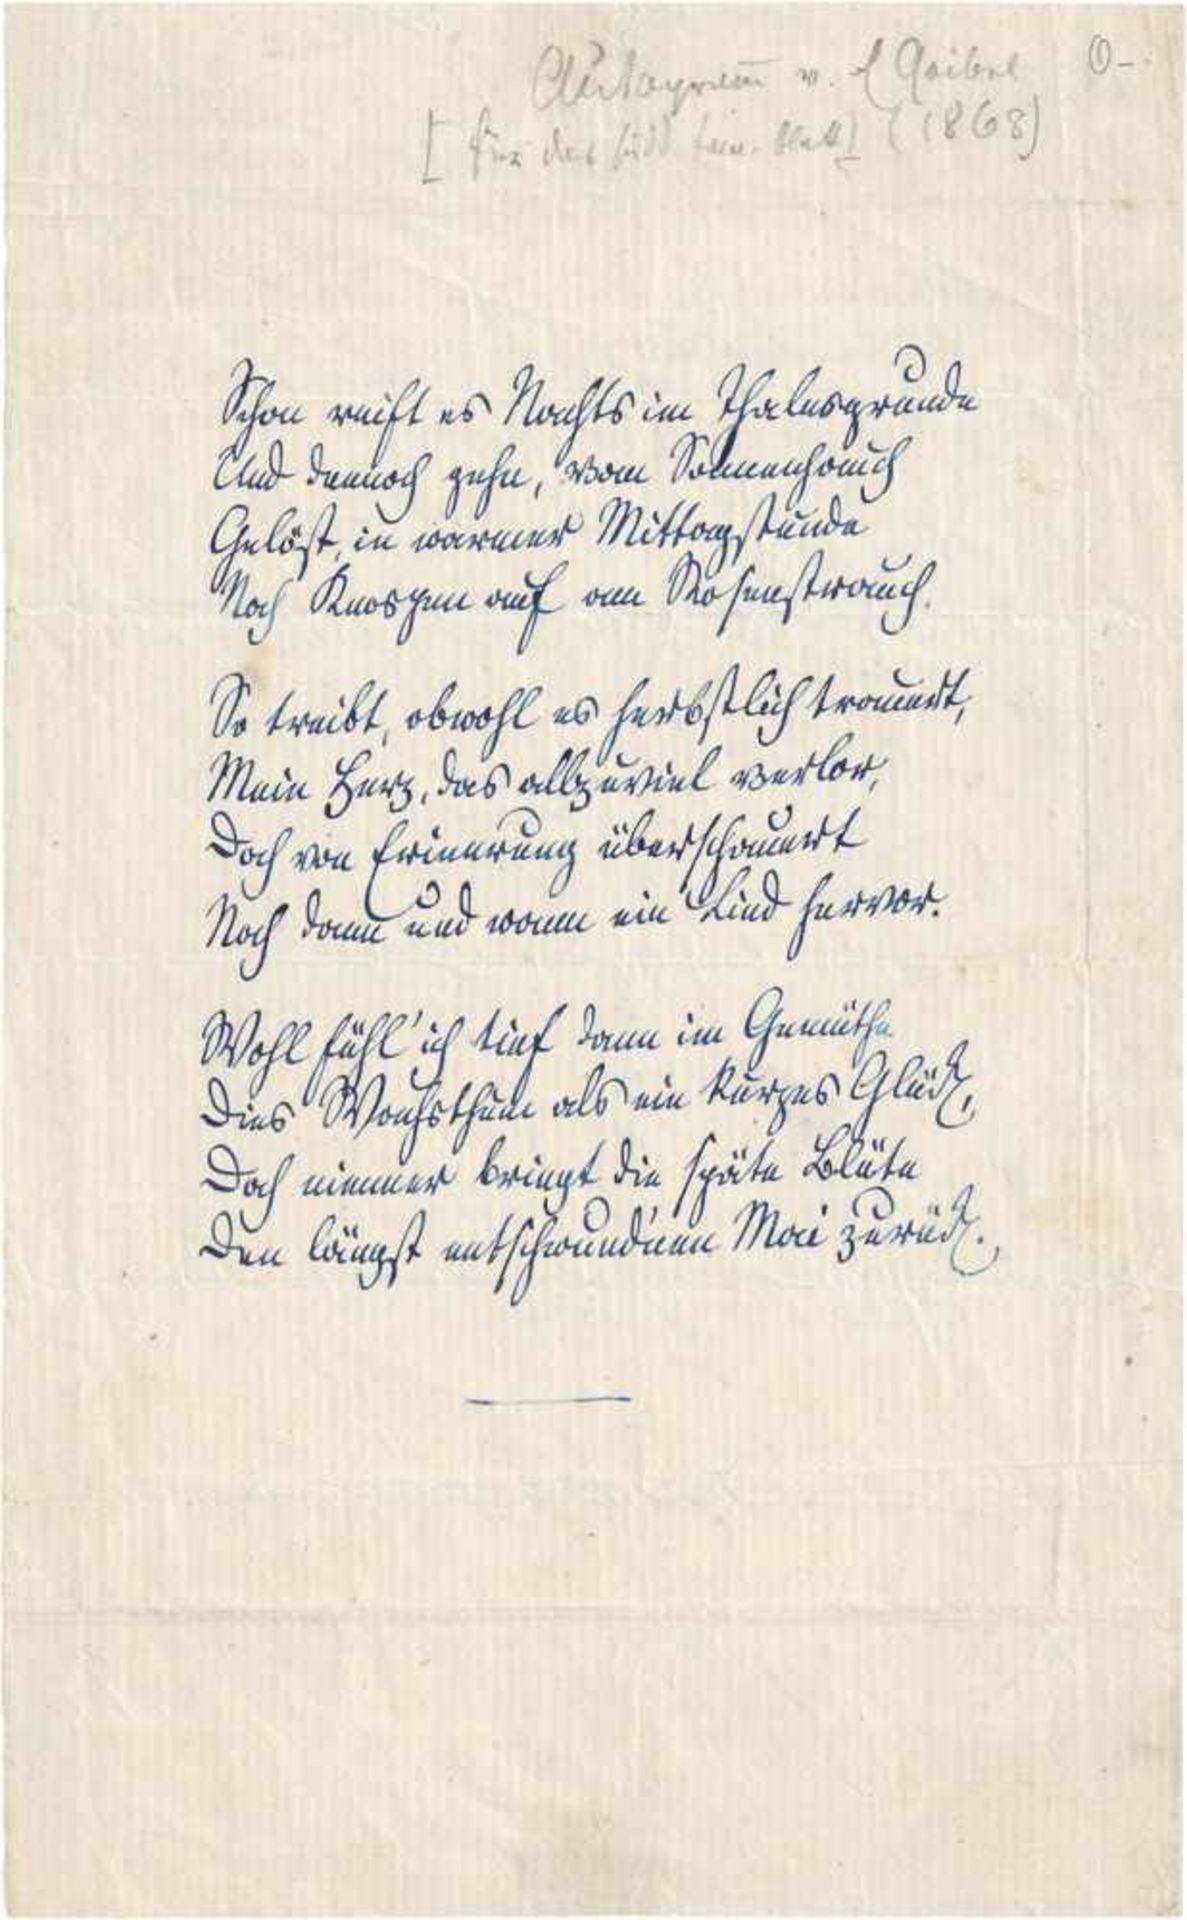 Autogramm v. E Geibel
0-.
[für das süd. Blatt] (1868)
Schon reift es Nachts im Thalesgrunde
Und dennoch gehn, vom Sonnenhauch
Gelöst, in warmer Mittagsstunde
Noch Knospen auf am Rosenstrauch.
So treibt, obwohl es herbstlich trauert,
Mein Herz, das allzuviel verlor,
Doch von Erinnerung überschauert
Noch dann und wann ein Lied hervor.
Wohl fühl' ich tief dann im Gemüthe
Dies Wachsthum als ein kurzes Glück,
Doch nimmer bringt die späte Blüte
Den längst entschwund'nen Mai zurück.